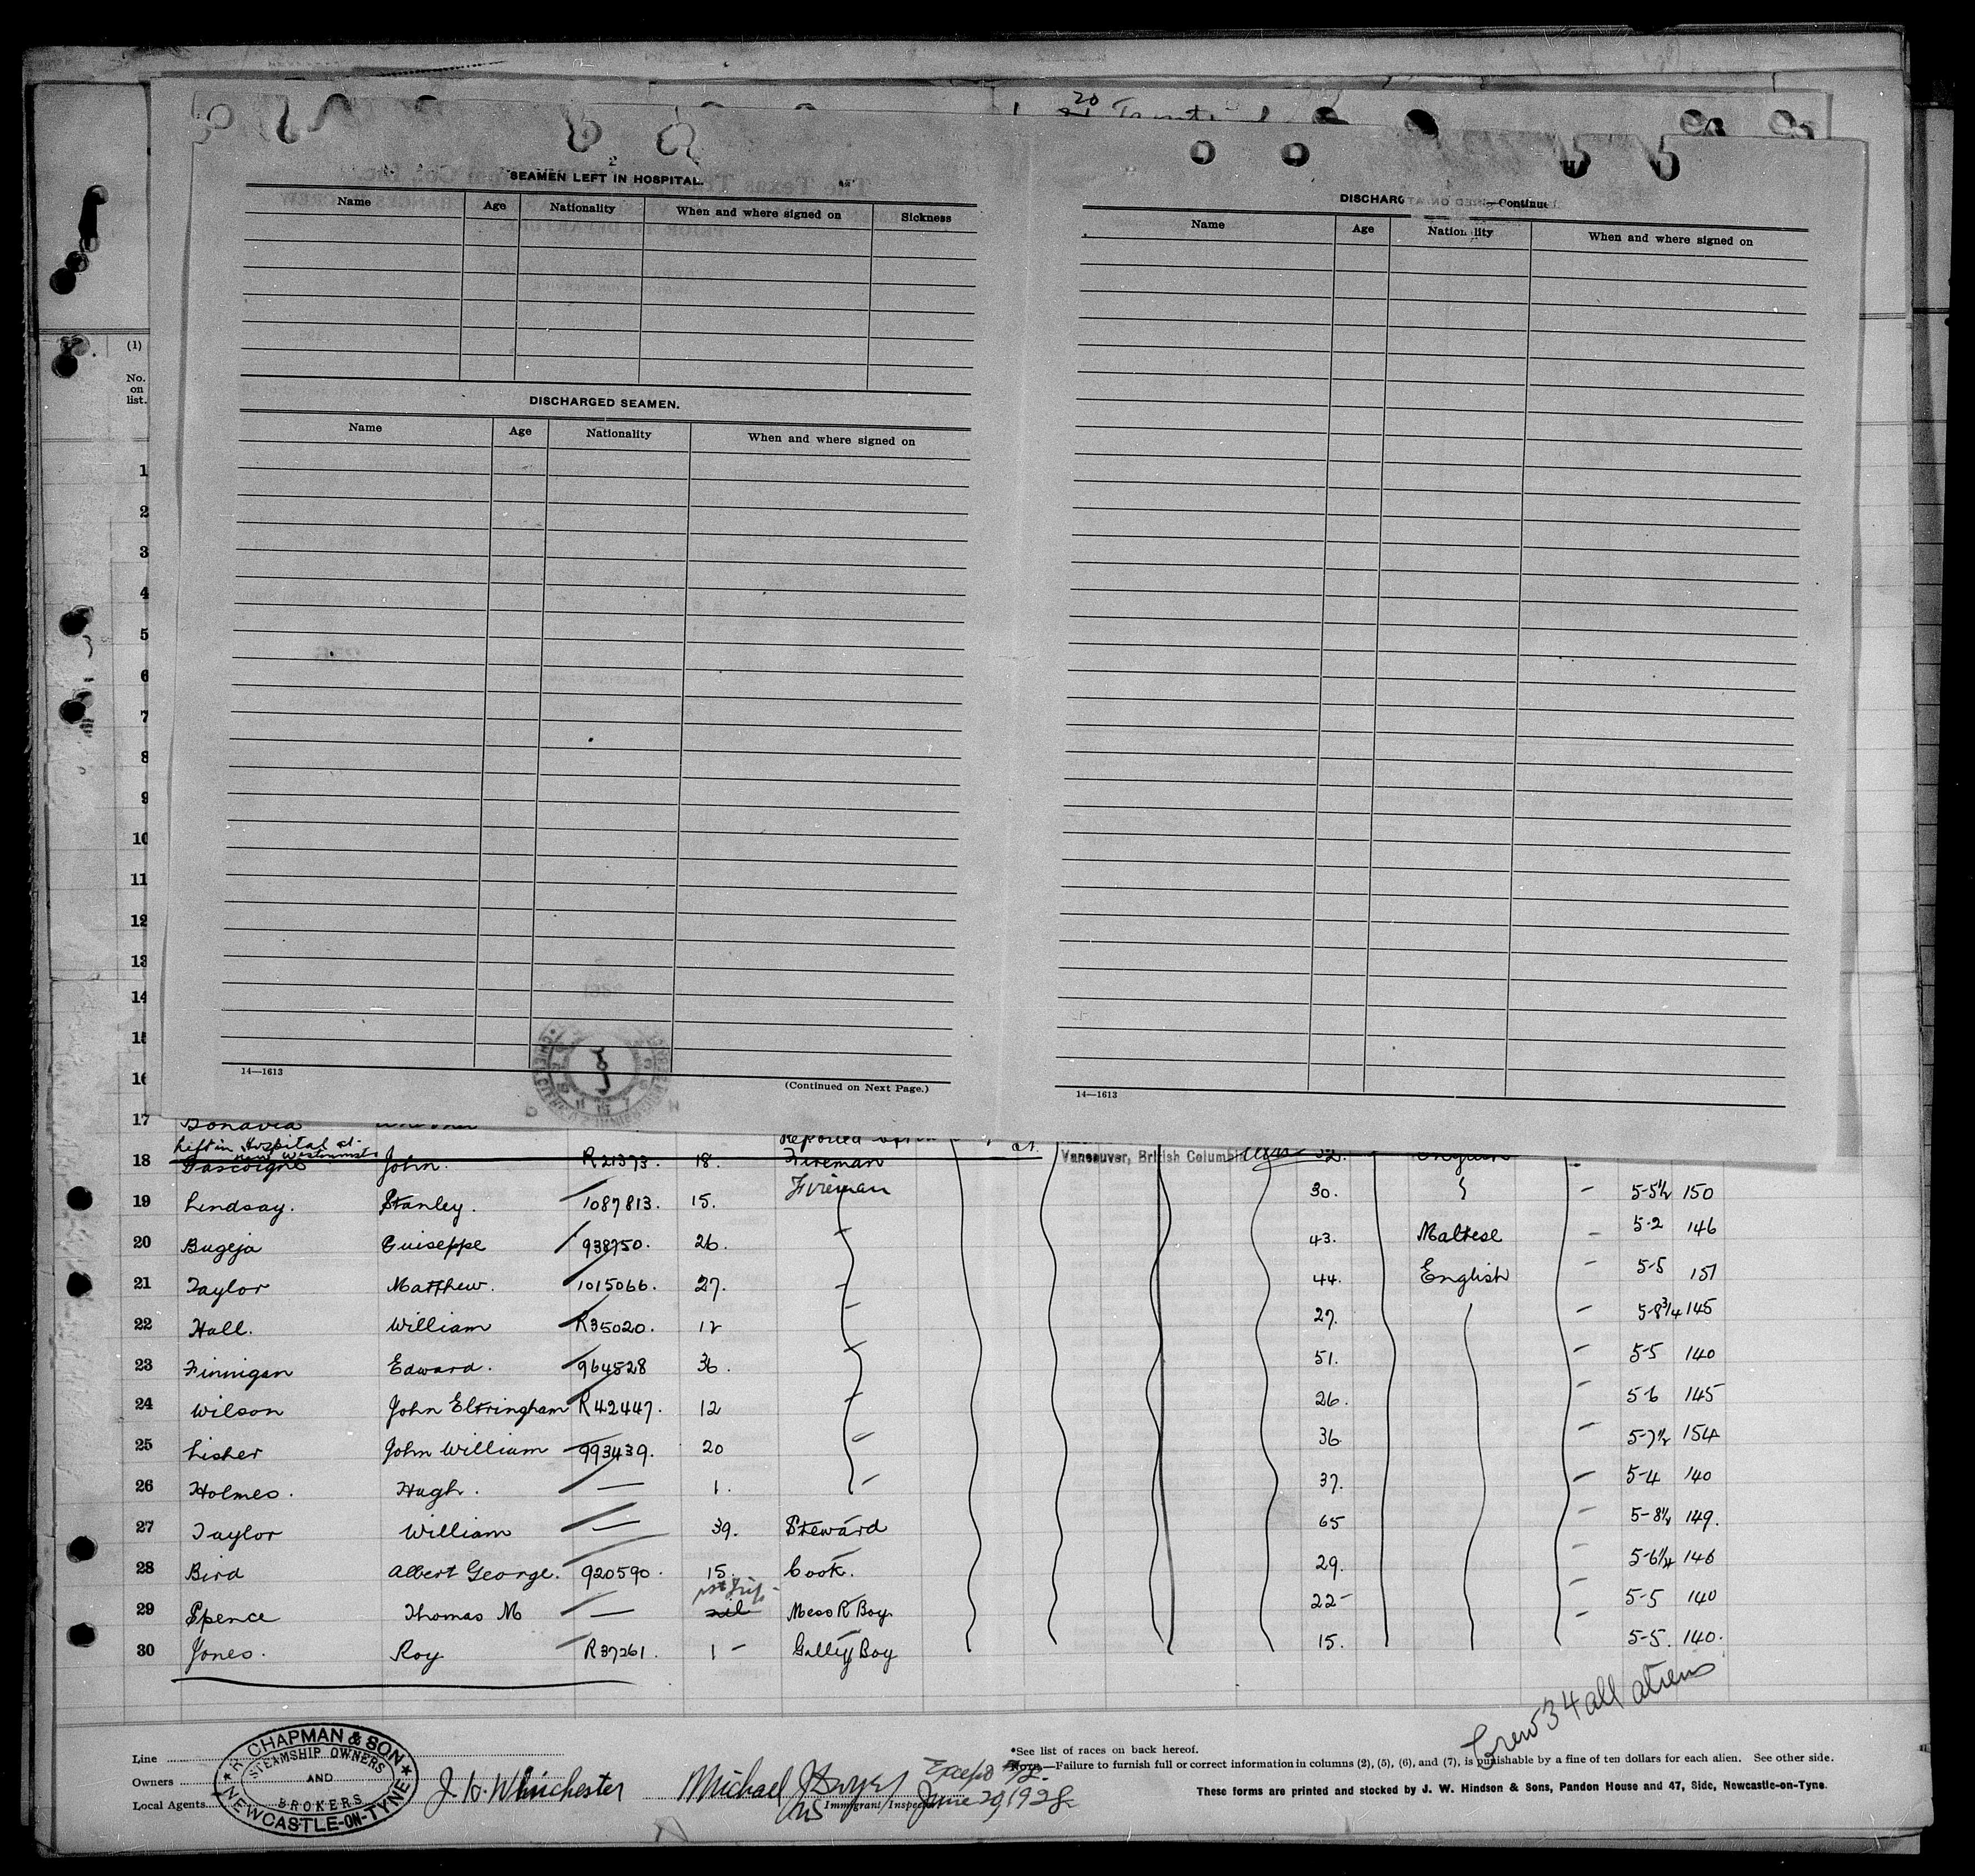 20
2
SEAMEN LEFT IN HOSPITAL.
Name Age Nationality When and where signed on Sickness
DISCHARGED SEAMEN.
Name Age Nationality When and where signed on
14—1613
(Continued on Next Page.)
DISCHARG —Continue
Name Age Nationality When and where signed on
14—1613
(1)
No. on list.
1
2
3
4
5
6
7
8
9
10
11
12
13
14
15
16
17 Bonavia
Left in Hospital at New Westminster
18 Gascoigne John. R21373. 18. Fireman at Vancouver, British Columbia 32. English
19 Lindsay. Stanley. 1087813. 15. Fireman 30. – 5-5½ 150
20 Bugeja Guiseppe 938750. 26. 43. Maltese – 5-2 146
21 Taylor Matthew. 1015066. 27. 44. English – 5-5 151
22 Hall. William R35020. 12 27. – 5-8¾ 145
23 Finnigan Edward. 964528 36. 51. – 5-5 140
24 Wilson John Eltringham R42447. 12 26. – 5-6 145
25 Lisher John William 993439. 20 36 – 5-7½ 154
26 Holmes. Hugh. — 1. 37. – 5-4 140
27 Taylor William — 39. Steward 65 – 5-8½ 149.
28 Bird Albert George. 920590. 15. Cook. 29. – 5-6¼ 146
29 Spence Thomas M — 1st Trip nil Mess R Boy 22 – 5-5 140
30 Jones. Roy R37261. 1 – Galley Boy 15. 5-5. 140.
Crew 34 all aliens
Line
Owners
Local Agents
R. CHAPMAN & SON
STEAMSHIP OWNERS
AND
BROKERS
NEWCASTLE-ON-TYNE
J. H. Winchester
Michael
Immigrant Inspector
June 20, 1928
*See list of races on back hereof.
NOTE.—Failure to furnish full or correct information in columns (2), (5), (6), and (7), is punishable by a fine of ten dollars for each alien. See other side.
These forms are printed and stocked by J. W. Hindson & Sons, Pandon House and 47, Side, Newcastle-on-Tyne.